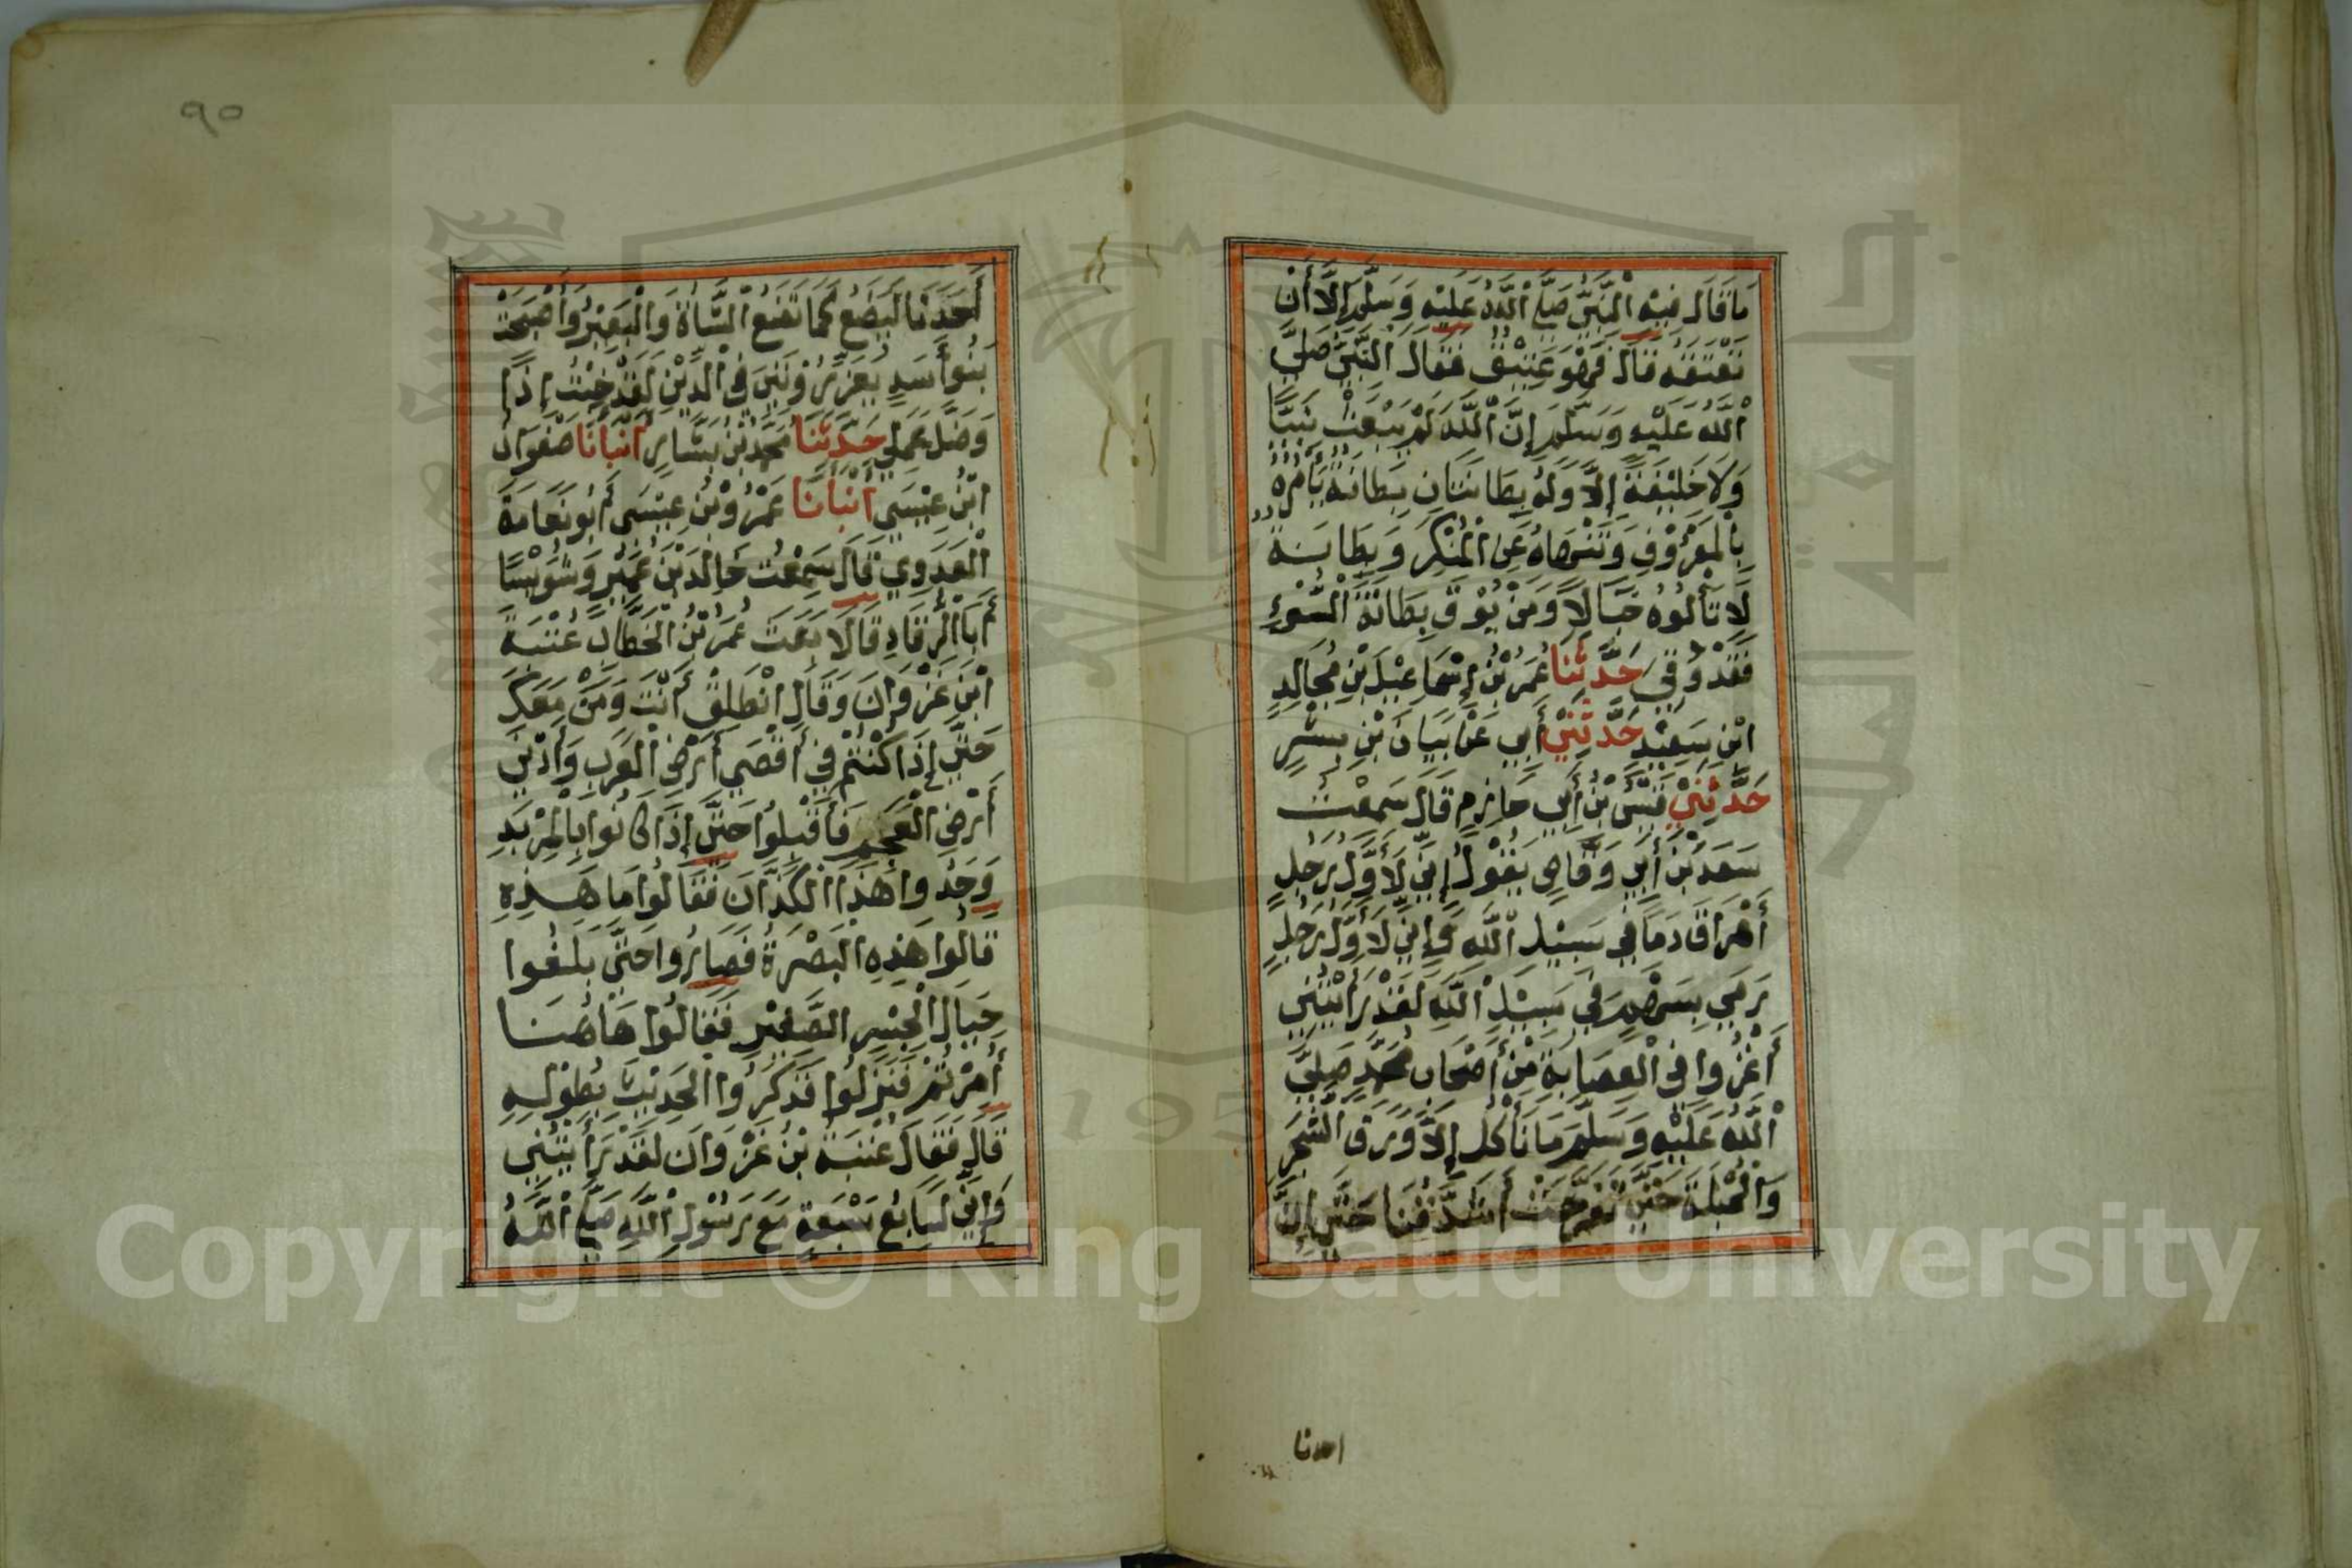 مَا قَالَ فِيْهِ النَّبِيُّ صَلَّى اللَّهُ عَلَيْهِ وَسَلَّمَ إِلَّا أَنْ
تَعْتَقَهُ قَالَ فَهُوَ عَتِيْقٌ فَقَالَ النَّبِيُّ صَلَّى
اللَّهُ عَلَيْهِ وَسَلَّمَ إِنَّ اللَّهَ لَمْ يَبْعَثْ نَبِيًّا
وَلَا خَلِيْفَةً إِلَّا وَلَهُ بِطَانَتَانِ بِطَانَةٌ تَأْمُرُهُ
بِالْمَعْرُوْفِ وَتَنْهَاهُ عَنِ الْمُنْكَرِ وَبِطَانَةٌ
لَا تَأْلُوْهُ خَبَالًا وَمَنْ يُوْقَ بِطَانَةَ السُّوْءِ
فَقَدْ وُقِيَ حَدَّثَنَا عُمَرُ بْنُ إِسْمَاعِيْلَ بْنِ مُجَالِدِ
ابْنِ سَعِيْدٍ حَدَّثَنِيْ أَبِي عَنْ بَيَانَ بْنِ بِشْرٍ
حَدَّثَنِيْ قَيْسُ بْنُ أَبِي حَازِمٍ قَالَ سَمِعْتُ
سَعْدَ بْنَ أَبِي وَقَّاصٍ يَقُوْلُ إِنِّي لَأَوَّلُ رَجُلٍ
أَهْرَاقَ دَمًا فِي سَبِيْلِ اللَّهِ وَإِنِّي لَأَوَّلُ رَجُلٍ
رَمَي بِسَهْمٍ فِي سَبِيْلِ اللَّهِ لَقَدْ رَأَيْتُنِي
أَغْزُوا فِي الْعِصَابَةِ مِنْ أَصْحَابِ مُحَمَّدٍ صَلَّى
اللَّهُ عَلَيْهِ وَسَلَّمَ مَا نَأْكُلُ إِلَّا وَرَقَ الشَّجَرِ
وَالْحُبْلَةَ حَتَّى تَقَرَّحَتْ أَشْدَاقُنَا حَتَّى إِنَّ
احدنا
٩٠
أَحَدَنَا لَيَضَعُ كَمَا تَضَعُ الشَّاةُ وَالْبَعِيْرُ وَأَصْبَحَتْ
بَنُوْا أَسَدٍ يُعَزِّرُوْنَنِي فِي الدِّيْنِ لَقَدْ خِبْتُ إِذًا
وَضَلَّ عَمَلِي حَدَّثَنَا مُحَمَّدُ بْنُ بَشَّارٍ أَنْبَأَنَا صَفْوَانُ
ابْنُ عِيْسَى أَنْبَأَنَا عَمْرُوْ بْنُ عِيْسَى أَبُو نَعَامَةَ
الْعَدَوِيُّ قَالَ سَمِعْتُ خَالِدَ بْنَ عُمَيْرٍ وَشُوَيْسًا
أَبَا الرُّقَادِ قَالَا بَعَثَ عُمَرُ بْنُ الْخَطَّابِ عُتْبَةَ
ابْنَ غَزْوَانَ وَقَالَ انْطَلِقْ أَنْتَ وَمَنْ مَعَكَ
حَتَّى إِذَا كُنْتُمْ فِي أَقْصَى أَرْضِ الْعَرَبِ وَأَدْنَى
أَرْضِ الْعَجَمِ فَأَقْبِلُوْا حَتَّى إِذَا كَانُوا بِالْمِرْبَدِ
وَجَدُوا هَذَا الْكَذَّانَ فَقَالُوا مَا هَذِهِ
قَالُوا هَذِهِ الْبَصْرَةُ فَصَارُوا حَتَّى بَلَغُوا
حِيَالَ الْجِسْرِ الصَّغِيْرِ فَقَالُوْا هَاهُنَا
أُمِرْتُمْ فَنَزَلُوْا فَذَكَرُوا الْحَدِيْثَ بِطُوْلِهِ
قَالَ فَقَالَ عُتْبَةُ بْنُ غَزْوَانَ لَقَدْ رَأَيْتُنِي
وَإِنِّي لَسَابِعُ سَبْعَةٍ مَعَ رَسُوْلِ اللَّهِ صَلَّى اللَّهُ
Copyright © King Saud University